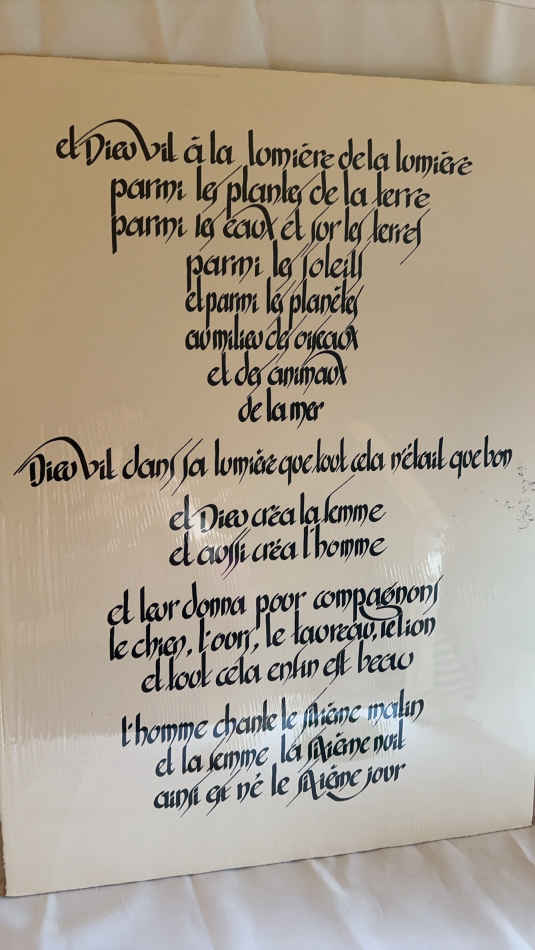 et Dieu vit à la lumière de la lumière
parmi les plantes de la terre
parmi les eaux et sur les terres
parmi les soleils
et parmi les planètes
au milieu des oiseaux
et des animaux
de la mer
Dieu vit dans sa lumière que tout cela n'était que bon
et Dieu créa la femme
et aussi créa l'homme
et leur donna pour compagnons
le chien, l'ours, le taureau, le lion
et tout cela enfin est beau
l'homme chante le sixième matin
et la femme la sixième nuit
ainsi est né le sixième jour